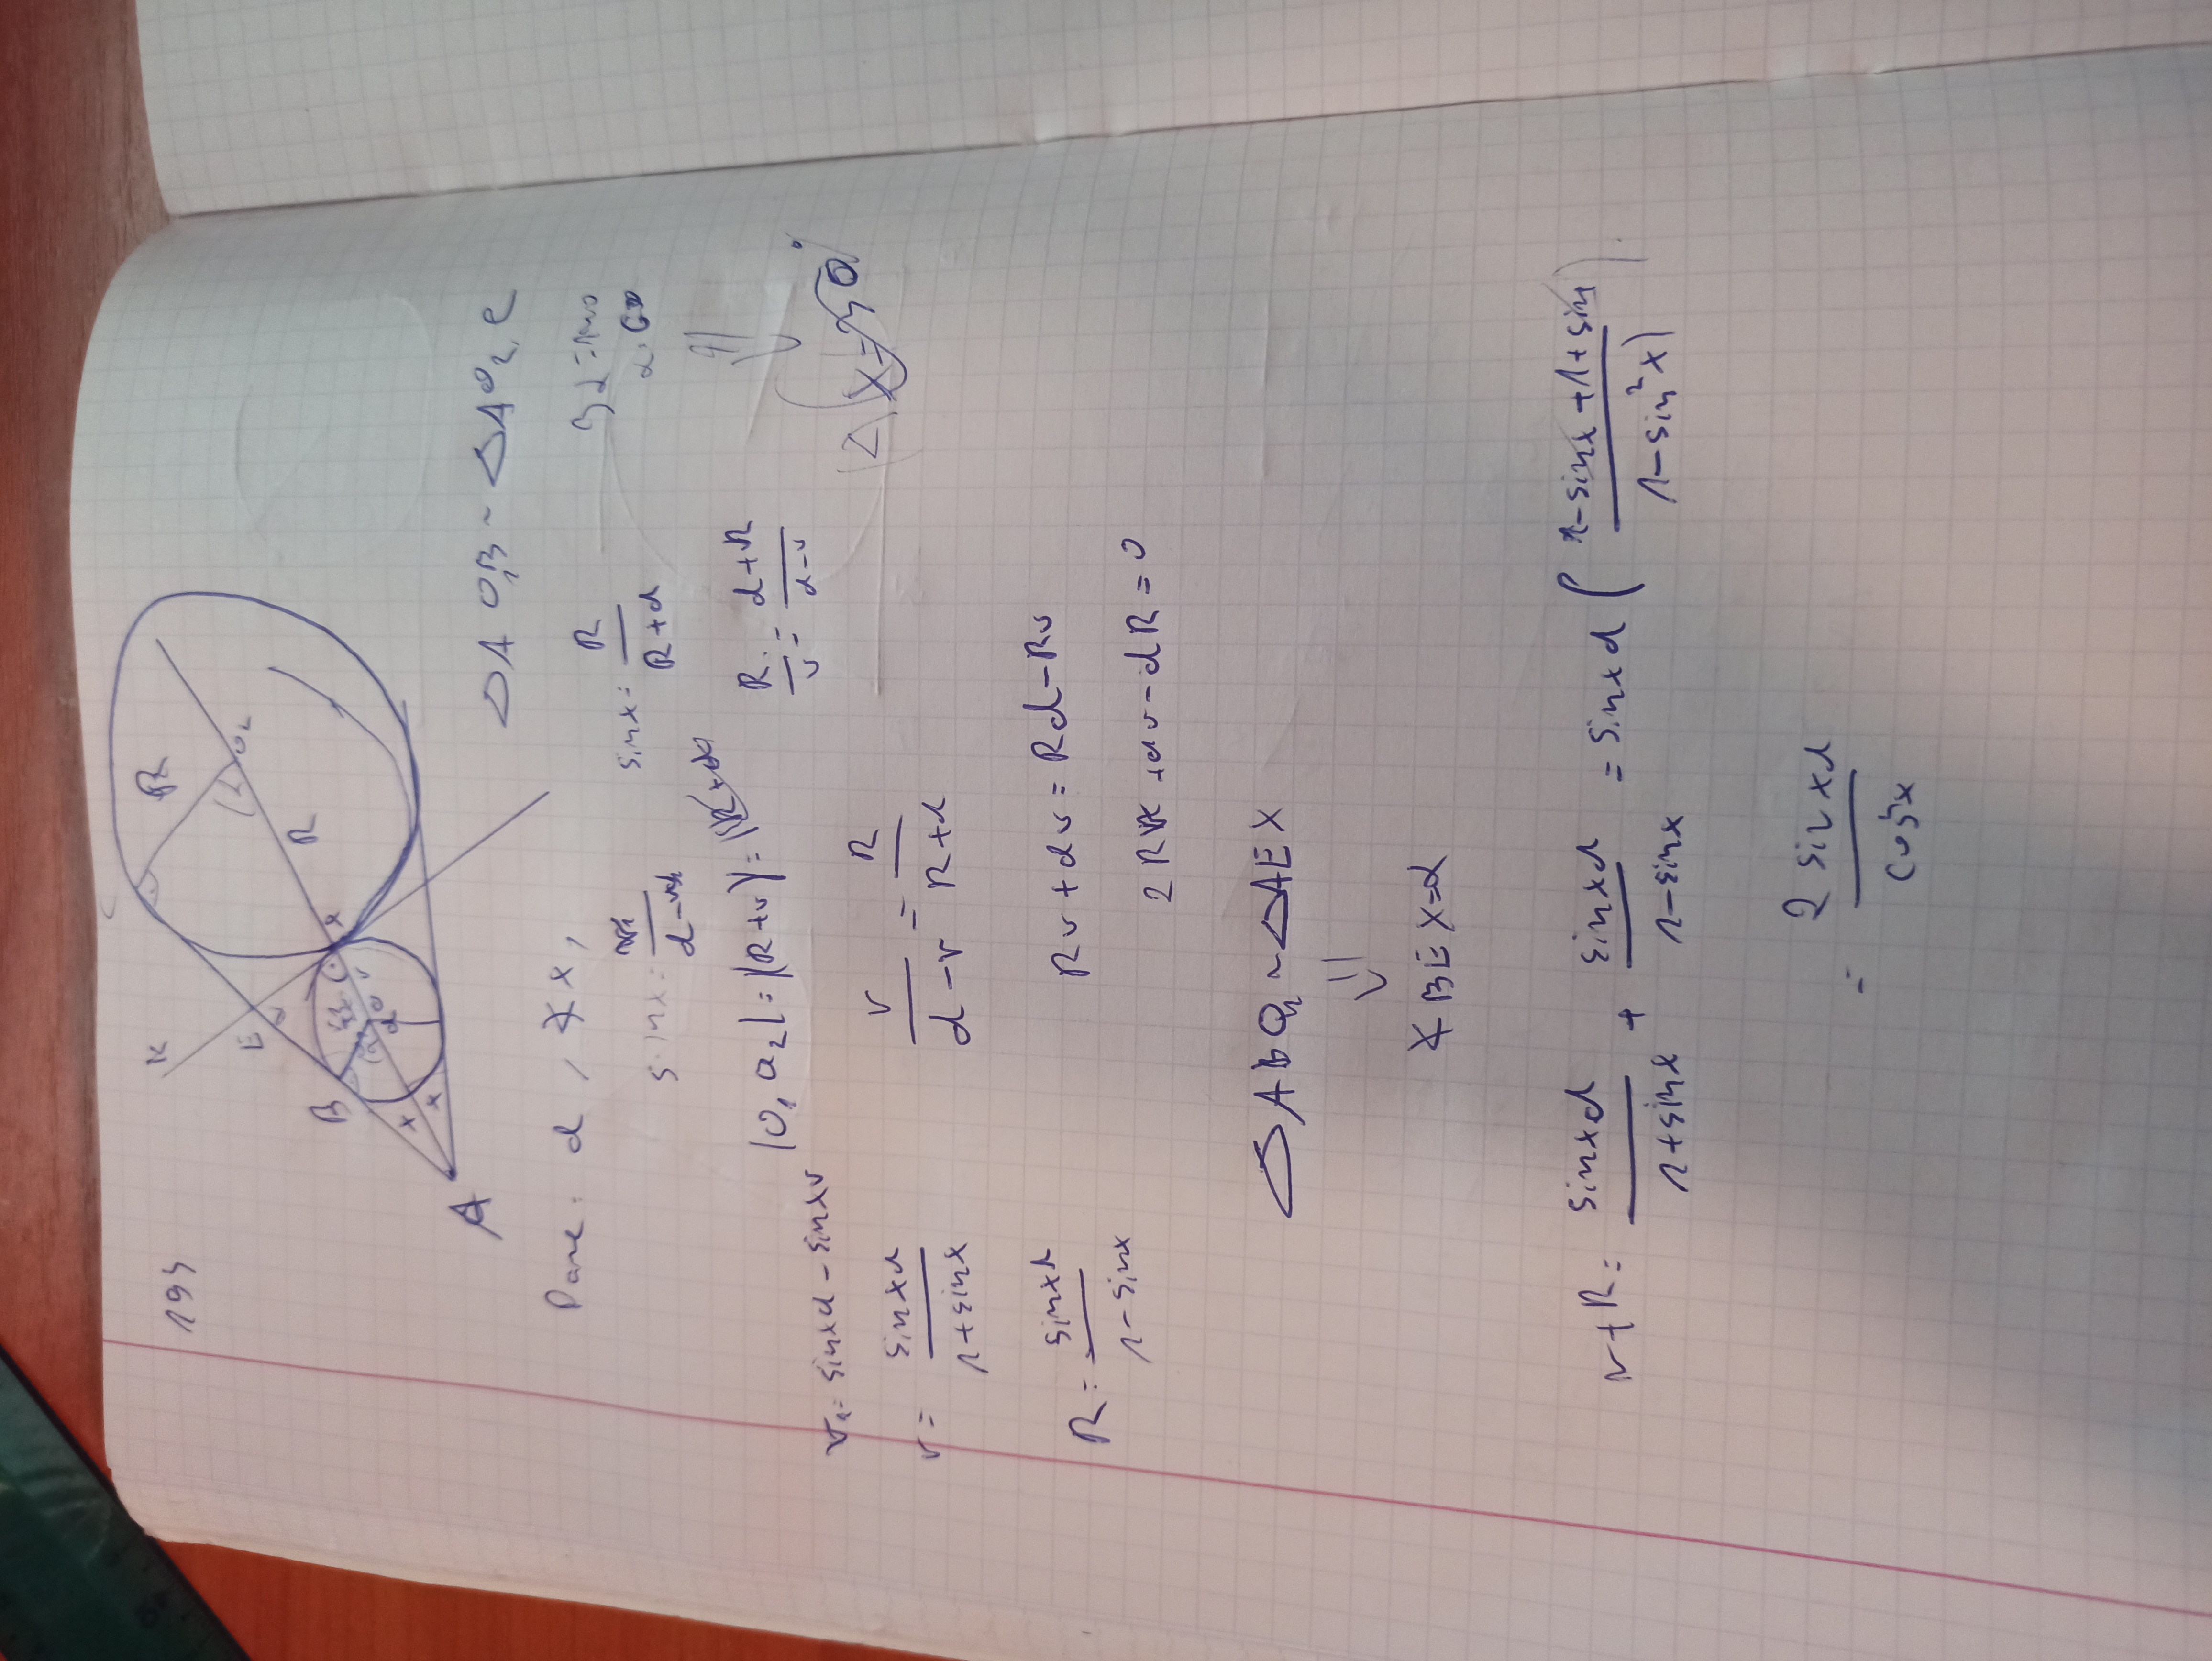 193
K
E
B
R
R
O₂
x
x
x
A
d
Dane: d, ∢x,
△AO₁B ~ △AO₂C
sin x = R/(R+d)
|O₁O₂| = |R+r| =
R/r = (d+R)/(d-r)
x=30°
r = sinxd - sinxr
r = sinxd/(1+sinx)
r/(d-r) = R/(R+d)
R = sinxd/(1-sinx)
Rr + dr = Rd - Rr
2Rr + dr - dR = 0
△ABO₁ ~ △AEX
⇓
∢BEX=α
r+R = sinxd/(1+sinx) + sinxd/(1-sinx) = sinxd ((1-sinx+1+sinx)/(1-sin²x))
= 2sinxd/cos²x